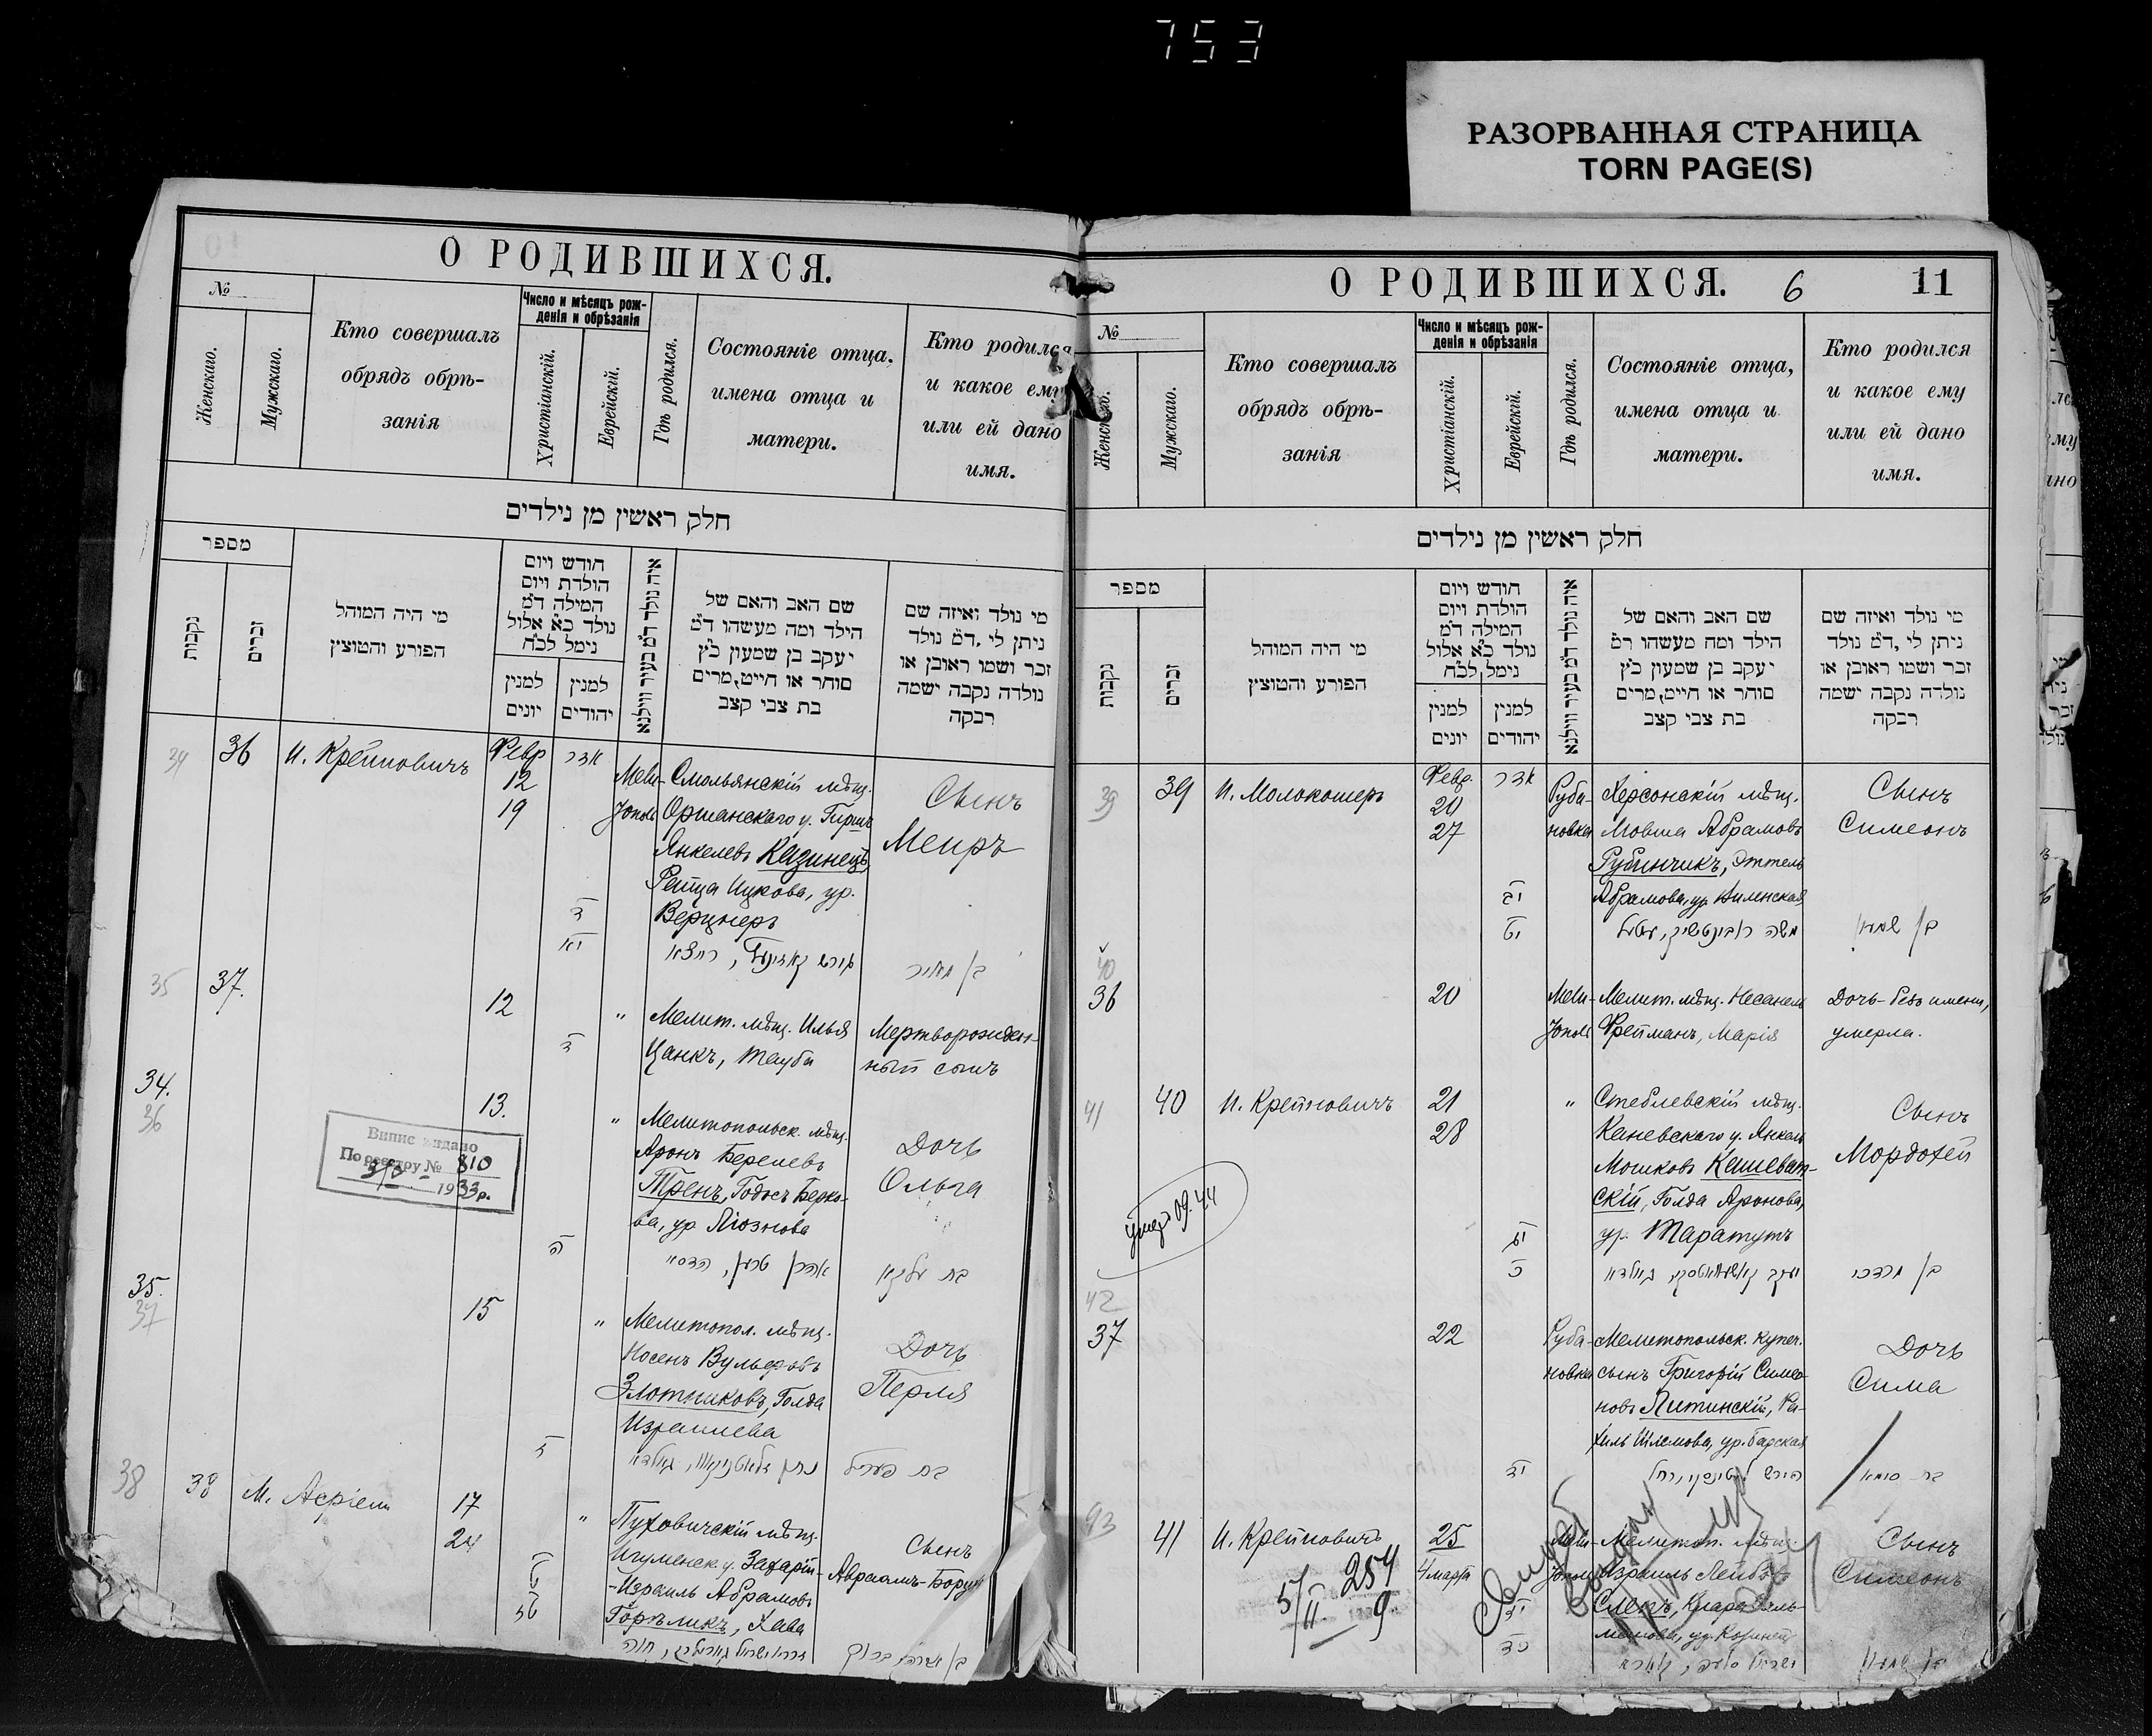 753
РАЗОРВАННАЯ СТРАНИЦА
TORN PAGE(S)
О РОДИВШИХСЯ.
№
Женскаго.
Мужскаго.
Кто совершалъ
обрядъ обрѣ-
занія
Число и мѣсяцъ рож-
денія и обрѣзанія
Христіанскій.
Еврейскій.
Гдѣ родился.
Состояніе отца,
имена отца и
матери.
Кто родился
и какое ему
или ей дано
имя.
חלק ראשין מן נילדים
מספר
נקבות
זכרים
מי היה המוהל
הפורע והטוצץ
חודש ויום
הולדת ויום
המילה ד״מ
נולד כ״א אלול
נימל לכ״ח
למנין
יונים
למנין
יהודים
איה נולד ד״מ בעיר ווילנא
שם האב והאם של
הילד ומה מעשהו ד״מ
יעקב בן שמעון כ״ץ
סוחר או חייט, מרים
בת צבי קצב
מי נולד ואיזה שם
ניתן לי, ד״מ נולד
זכר ושמו ראובן או
נולדה נקבה ישמה
רבקה
34
36
И. Крейновичъ
Февр
12
19
אדר
ד
יא
Мели-
тополь
Смольянскій мѣщ.
Оршанскаго у. Гиршъ
Янкелевъ Казинецъ,
Рейца Ицкова, ур.
Верцнеръ
Сынъ
Меиръ
בן מאיר
35
37.
12
ד
"
Мелит. мѣщ. Илья
Цанкъ, Тауба
Мертворожден-
ный сынъ
34.
36
13.
ה
"
Мелитопольск. мѣщ.
Аронъ Берелевъ
Тренъ, Годесъ Берко-
ва, ур Ліознова
Дочь
Ольга
Випис видано
По реєстру № 810
1933р.
35.
37
15
"
Мелитопол. мѣщ.
Носенъ Вульфовъ
Злотниковъ, Голда
Израилева
Дочь
Перля
בת פערל
38
38
М. Асріели
17
24
"
Пуховичскій мѣщ.
Игуменск. у. Захарій-
-Израиль Абрамовъ
Горѣликъ, Хава
Сынъ
Авраамъ-Борухъ
О РОДИВШИХСЯ.
6
11
№
Женскаго.
Мужскаго.
Кто совершалъ
обрядъ обрѣ-
занія
Число и мѣсяцъ рож-
денія и обрѣзанія
Христіанскій.
Еврейскій.
Гдѣ родился.
Состояніе отца,
имена отца и
матери.
Кто родился
и какое ему
или ей дано
имя.
חלק ראשין מן נילדים
מספר
נקבות
זכרים
מי היה המוהל
הפורע והטוצץ
חודש ויום
הולדת ויום
המילה ד״מ
נולד כ״א אלול
נימל לכ״ח
למנין
יונים
למנין
יהודים
איה נולד ד״מ בעיר ווילנא
שם האב והאם של
הילד ומח מעשהו ד״מ
יעקב בן שמעון כ״ץ
סוחר או חייט, מרים
בת צבי קצב
מי נולד ואיזה שם
ניתן לי, ד״מ נולד
זכר ושמו ראובן או
נולדה נקבה ישמה
רבקה
39
39
И. Молокошеръ
Февр.
20
27
אדר
יב
יט
Руба-
новка
Херсонскій мѣщ.
Мовша Абрамовъ
Рубинчикъ, Эттель
Абрамова, ур. Виленская
Сынъ
Симеонъ
40
36
20
Мели-
тополь
Мелит. мѣщ. Несанель
Фрейманъ, Марія
Дочь-безъ имени,
умерла.
41
40
И. Крейновичъ
21
28
"
Стеблевскій мѣщ.
Каневскаго у. Янкель
Мошковъ Кашеват-
скій, Голда Аронова,
ур. Таратутъ
Сынъ
Мордохей
בן מרדכי
42
37
22
יד
Руба-
новка
Мелитопольск. купеч.
сынъ Григорій Симео-
новъ Литинскій, Ра-
хиль Шлемова, ур. Барская
Дочь
Сима
בת סימא
43
41
И. Крейновичъ
25
4 марта
Мели-
тополь
Мелитоп. мѣщ.
Израиль Лейбовъ
Сынъ
Симеонъ